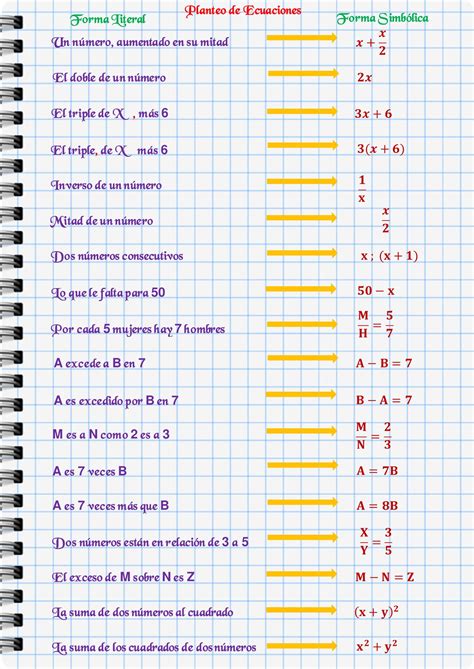 Planteo de Ecuaciones
Forma Literal Forma Simbólica
Un número, aumentado en su mitad x + x/2
El doble de un número 2x
El triple de X , más 6 3x + 6
El triple, de X más 6 3(x + 6)
Inverso de un número 1/x
Mitad de un número x/2
Dos números consecutivos x ; (x + 1)
Lo que le falta para 50 50 − x
Por cada 5 mujeres hay 7 hombres M/H = 5/7
A excede a B en 7 A − B = 7
A es excedido por B en 7 B − A = 7
M es a N como 2 es a 3 M/N = 2/3
A es 7 veces B A = 7B
A es 7 veces más que B A = 8B
Dos números están en relación de 3 a 5 X/Y = 3/5
El exceso de M sobre N es Z M − N = Z
La suma de dos números al cuadrado (x + y)²
La suma de los cuadrados de dos números x² + y²